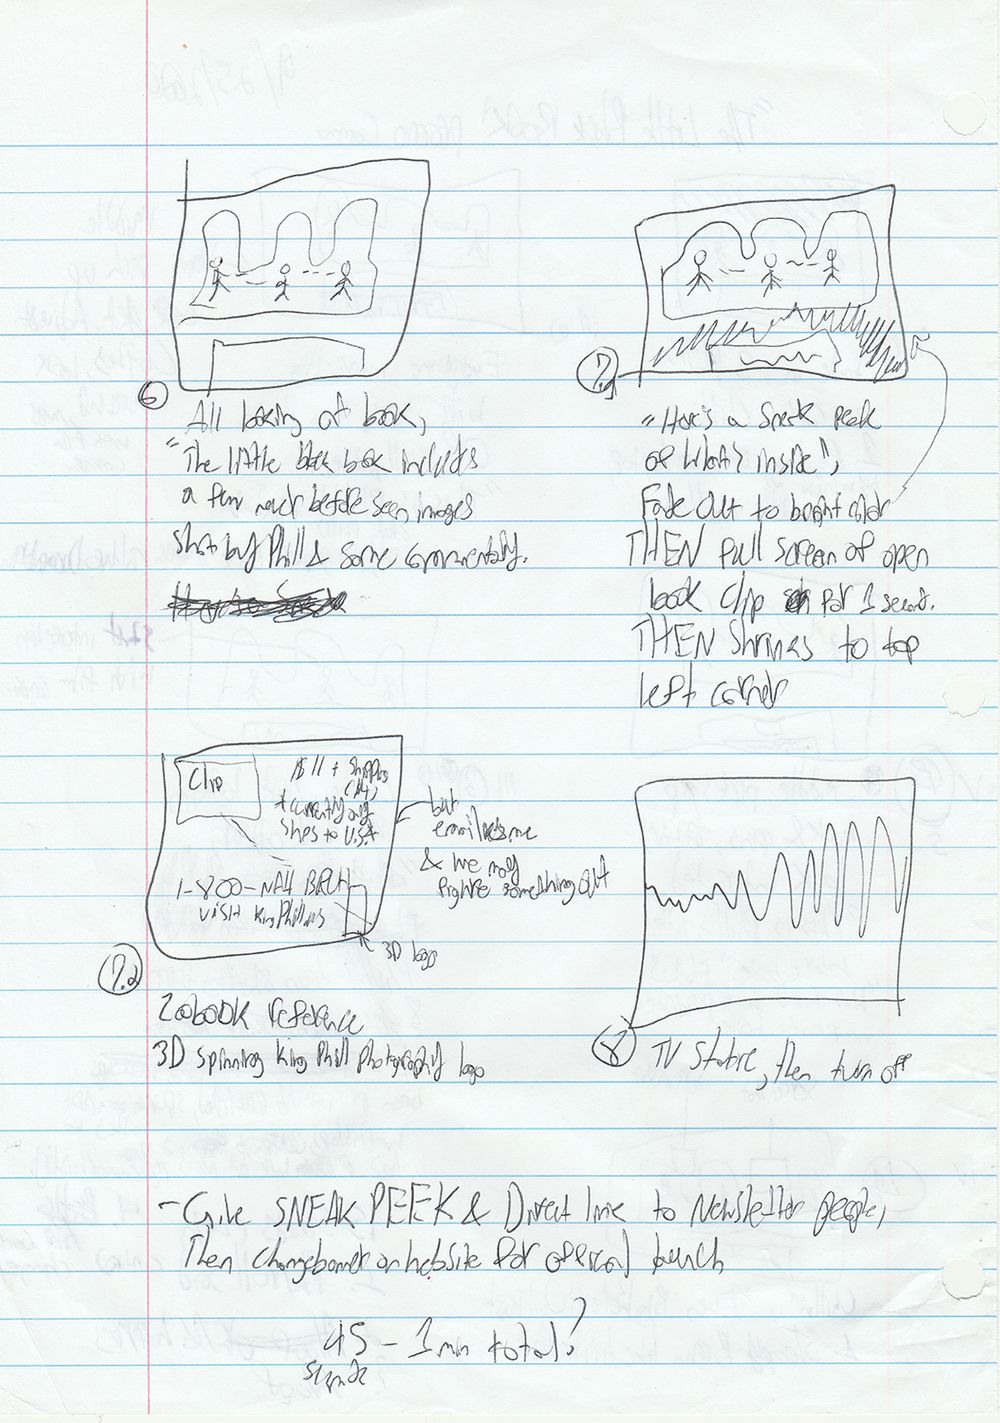 6
All looking at book,
"The little black book includes
a few never before seen images
shot by Phill & some commentary.
7.1
"Here's a sneak peek
of what's inside",
Fade out to bright color
THEN full screen of open
book clip for 1 second.
THEN shrinks to top
left corner
Clip
$11 + shipping
* currently only
ships to U.S.A
but
email me
& we may
figure something out
1-800-NAH BRUH
visit KingPhill
3D logo
7.2
Zoobook reference
3D spinning King Phill photography logo
8
TV static, then turn off
- Give SNEAK PEEK & Direct link to Newsletter people,
Then change banner on website for official launch
45 - 1 min total?
seconds